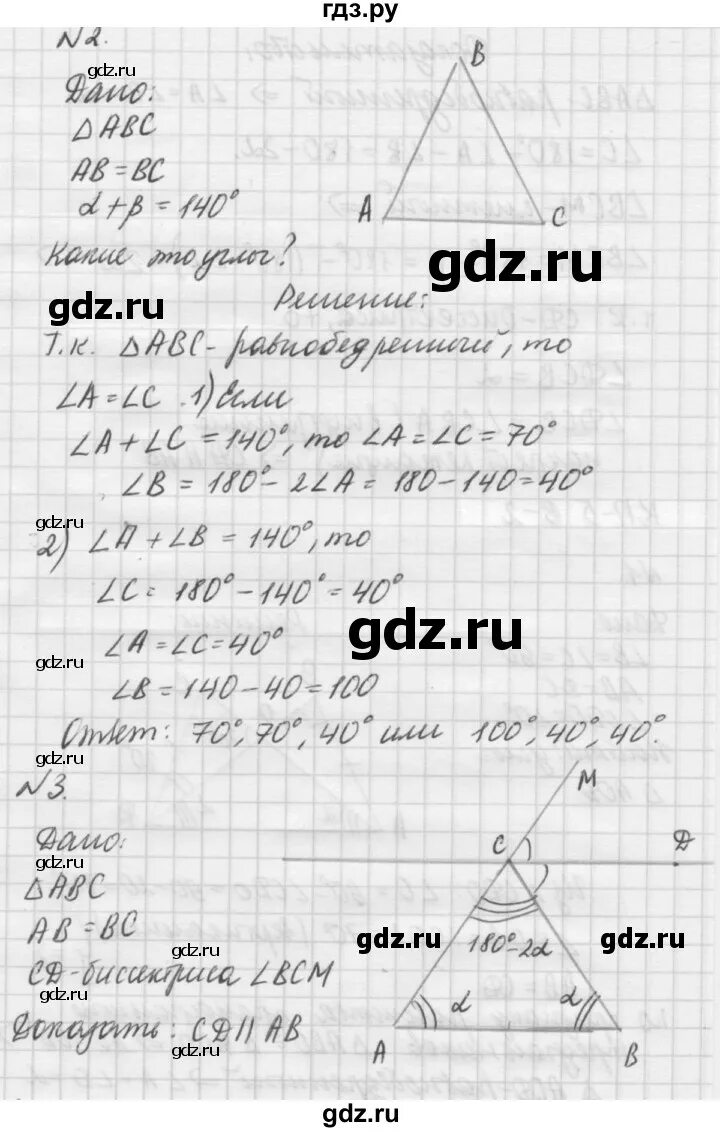 гдз.ру
N2.
gdz.ru
Дано:
△ABC
AB = BC
α + β = 140°
gdz.ru
Какие это углы?
B
A
C
gdz.ru
gdz.ru
Решение:
Т.к. △ABC - равнобедренный, то
∠A = ∠C. 1) Если
gdz.ru
∠A + ∠C = 140°, то ∠A = ∠C = 70°
∠B = 180° - 2∠A = 180 - 140 = 40°
gdz.ru
2) ∠A + ∠B = 140°, то
∠C = 180° - 140° = 40°
gdz.ru
∠A = ∠C = 40°
gdz.ru
∠B = 140 - 40 = 100
Ответ: 70°, 70°, 40° или 100°, 40°, 40°.
gdz.ru
N3.
Дано:
gdz.ru
△ABC
AB = BC
gdz.ru
CD - биссектриса ∠BCM
gdz.ru
Доказать: CD || AB
gdz.ru
M
C
D
180° - 2α
gdz.ru
gdz.ru
α
α
A
B
gdz.ru